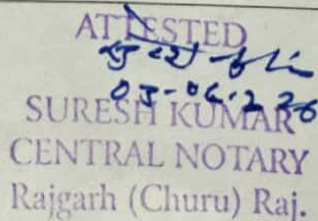 ATTESTED
SURESH KUMAR
CENTRAL NOTARY
Rajgarh (Churu) Raj.